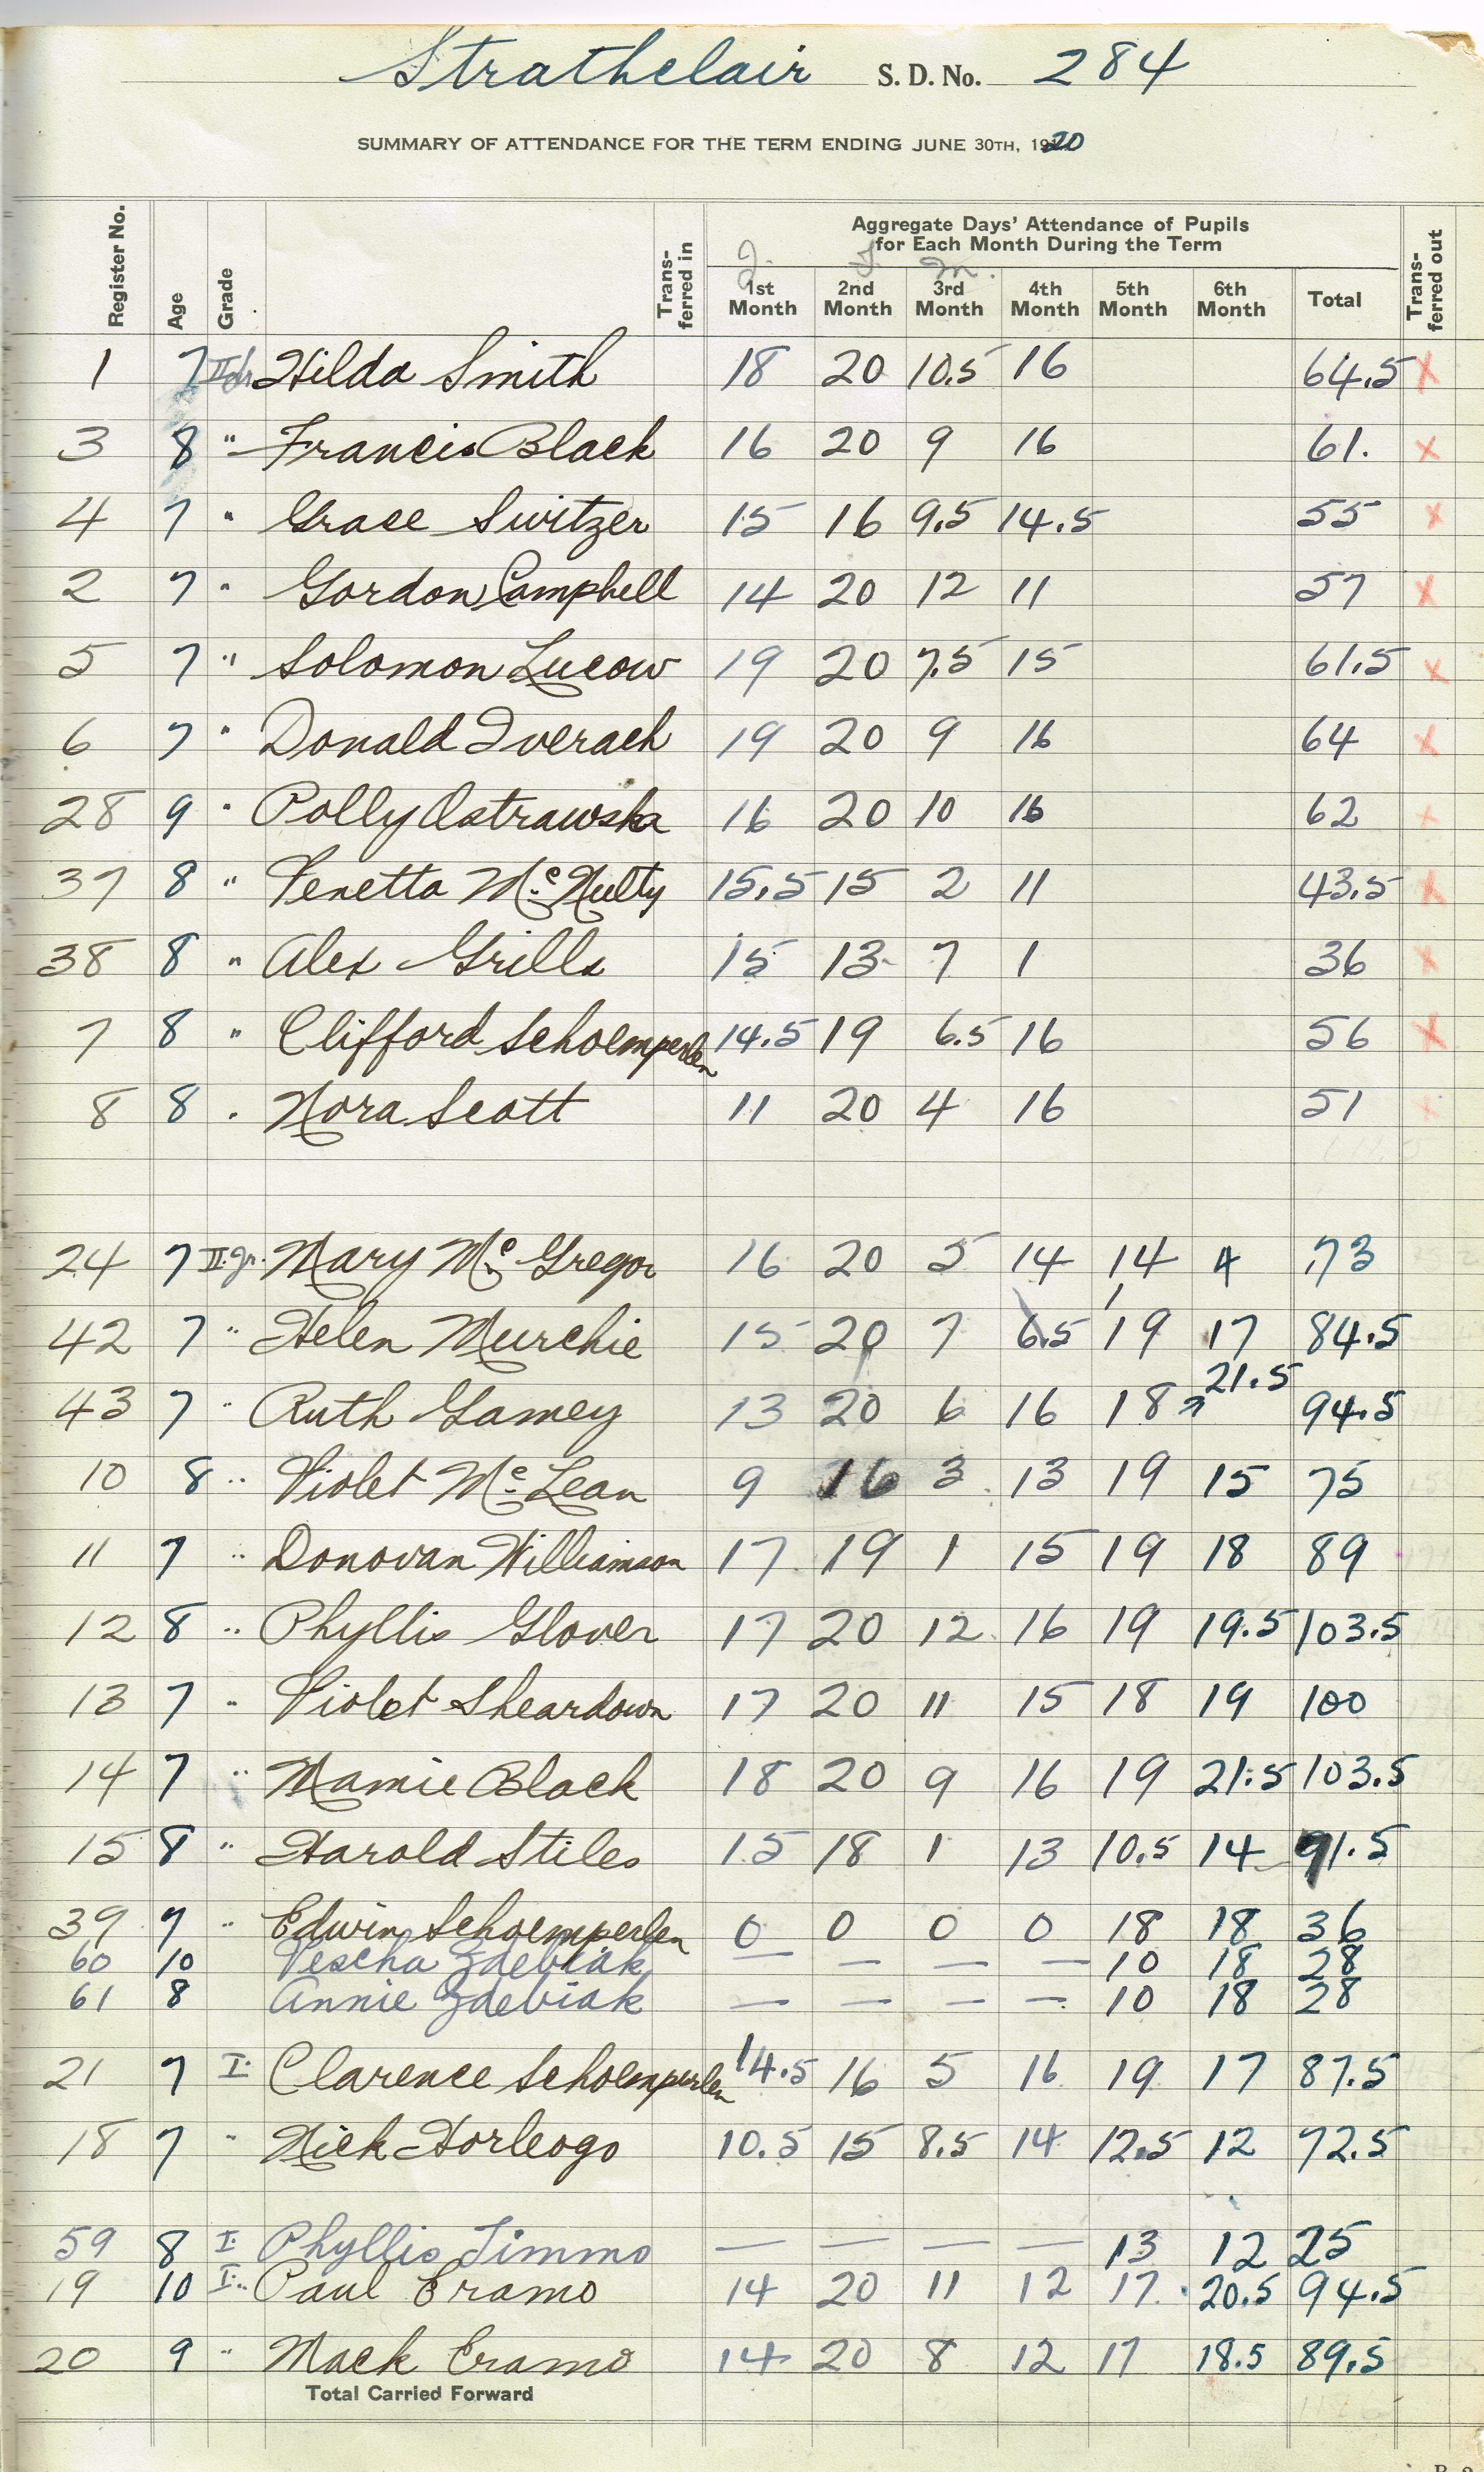 Strathclair S. D. No. 284
SUMMARY OF ATTENDANCE FOR THE TERM ENDING JUNE 30TH, 1920
Register No. Age Grade Trans-ferred in Aggregate Days' Attendance of Pupils for Each Month During the Term Trans-ferred out
J. F. M.
1st Month 2nd Month 3rd Month 4th Month 5th Month 6th Month Total
1 7 Hilda Smith 18 20 10.5 16 64.5 x
3 8 " Francis Black 16 20 9 16 61. x
4 7 " Grace Switzer 15 16 9.5 14.5 55 x
2 7 " Gordon Campbell 14 20 12 11 57 x
5 7 " Solomon Lucow 19 20 7.5 15 61.5 x
6 7 " Donald Iverach 19 20 9 16 64 x
28 9 " Polly Ostrawska 16 20 10 16 62 x
37 8 " Venetta Mc Nulty 15.5 15 2 11 43.5 x
38 8 " Alex Grills 15 13 7 1 36 x
7 8 " Clifford Schoemperlen 14.5 19 6.5 16 56 x
8 8 " Nora Scott 11 20 4 16 51 x
24 7 II Jr. Mary Mc Gregor 16 20 5 14 14 4 73
42 7 " Helen Murchie 15 20 7 6.5 19 17 84.5
43 7 " Ruth Gamey 13 20 6 16 18 21.5 94.5
10 8 " Violet Mc Lean 9 16 3 13 19 15 75
11 7 " Donovan Williamson 17 19 1 15 19 18 89
12 8 " Phyllis Glover 17 20 12 16 19 19.5 103.5
13 7 " Violet Sheardown 17 20 11 15 18 19 100
14 7 " Mamie Black 18 20 9 16 19 21.5 103.5
15 8 " Harold Stiles 15 18 1 13 10.5 14 91.5
39 7 " Edwin Schoemperlen 0 0 0 0 18 18 36
60 10 Pescha Zdebiak — — — — 10 18 28
61 8 Annie Zdebiak — — — — 10 18 28
21 7 I. Clarence Schoemperlen 14.5 16 5 16 19 17 87.5
18 7 " Nick Horleogo 10.5 15 8.5 14 12.5 12 72.5
59 8 I. Phyllis Timmo — — — — 13 12 25
19 10 I. Paul Eramo 14 20 11 12 17 20.5 94.5
20 9 " Mack Eramo 14 20 8 12 17 18.5 89.5
Total Carried Forward